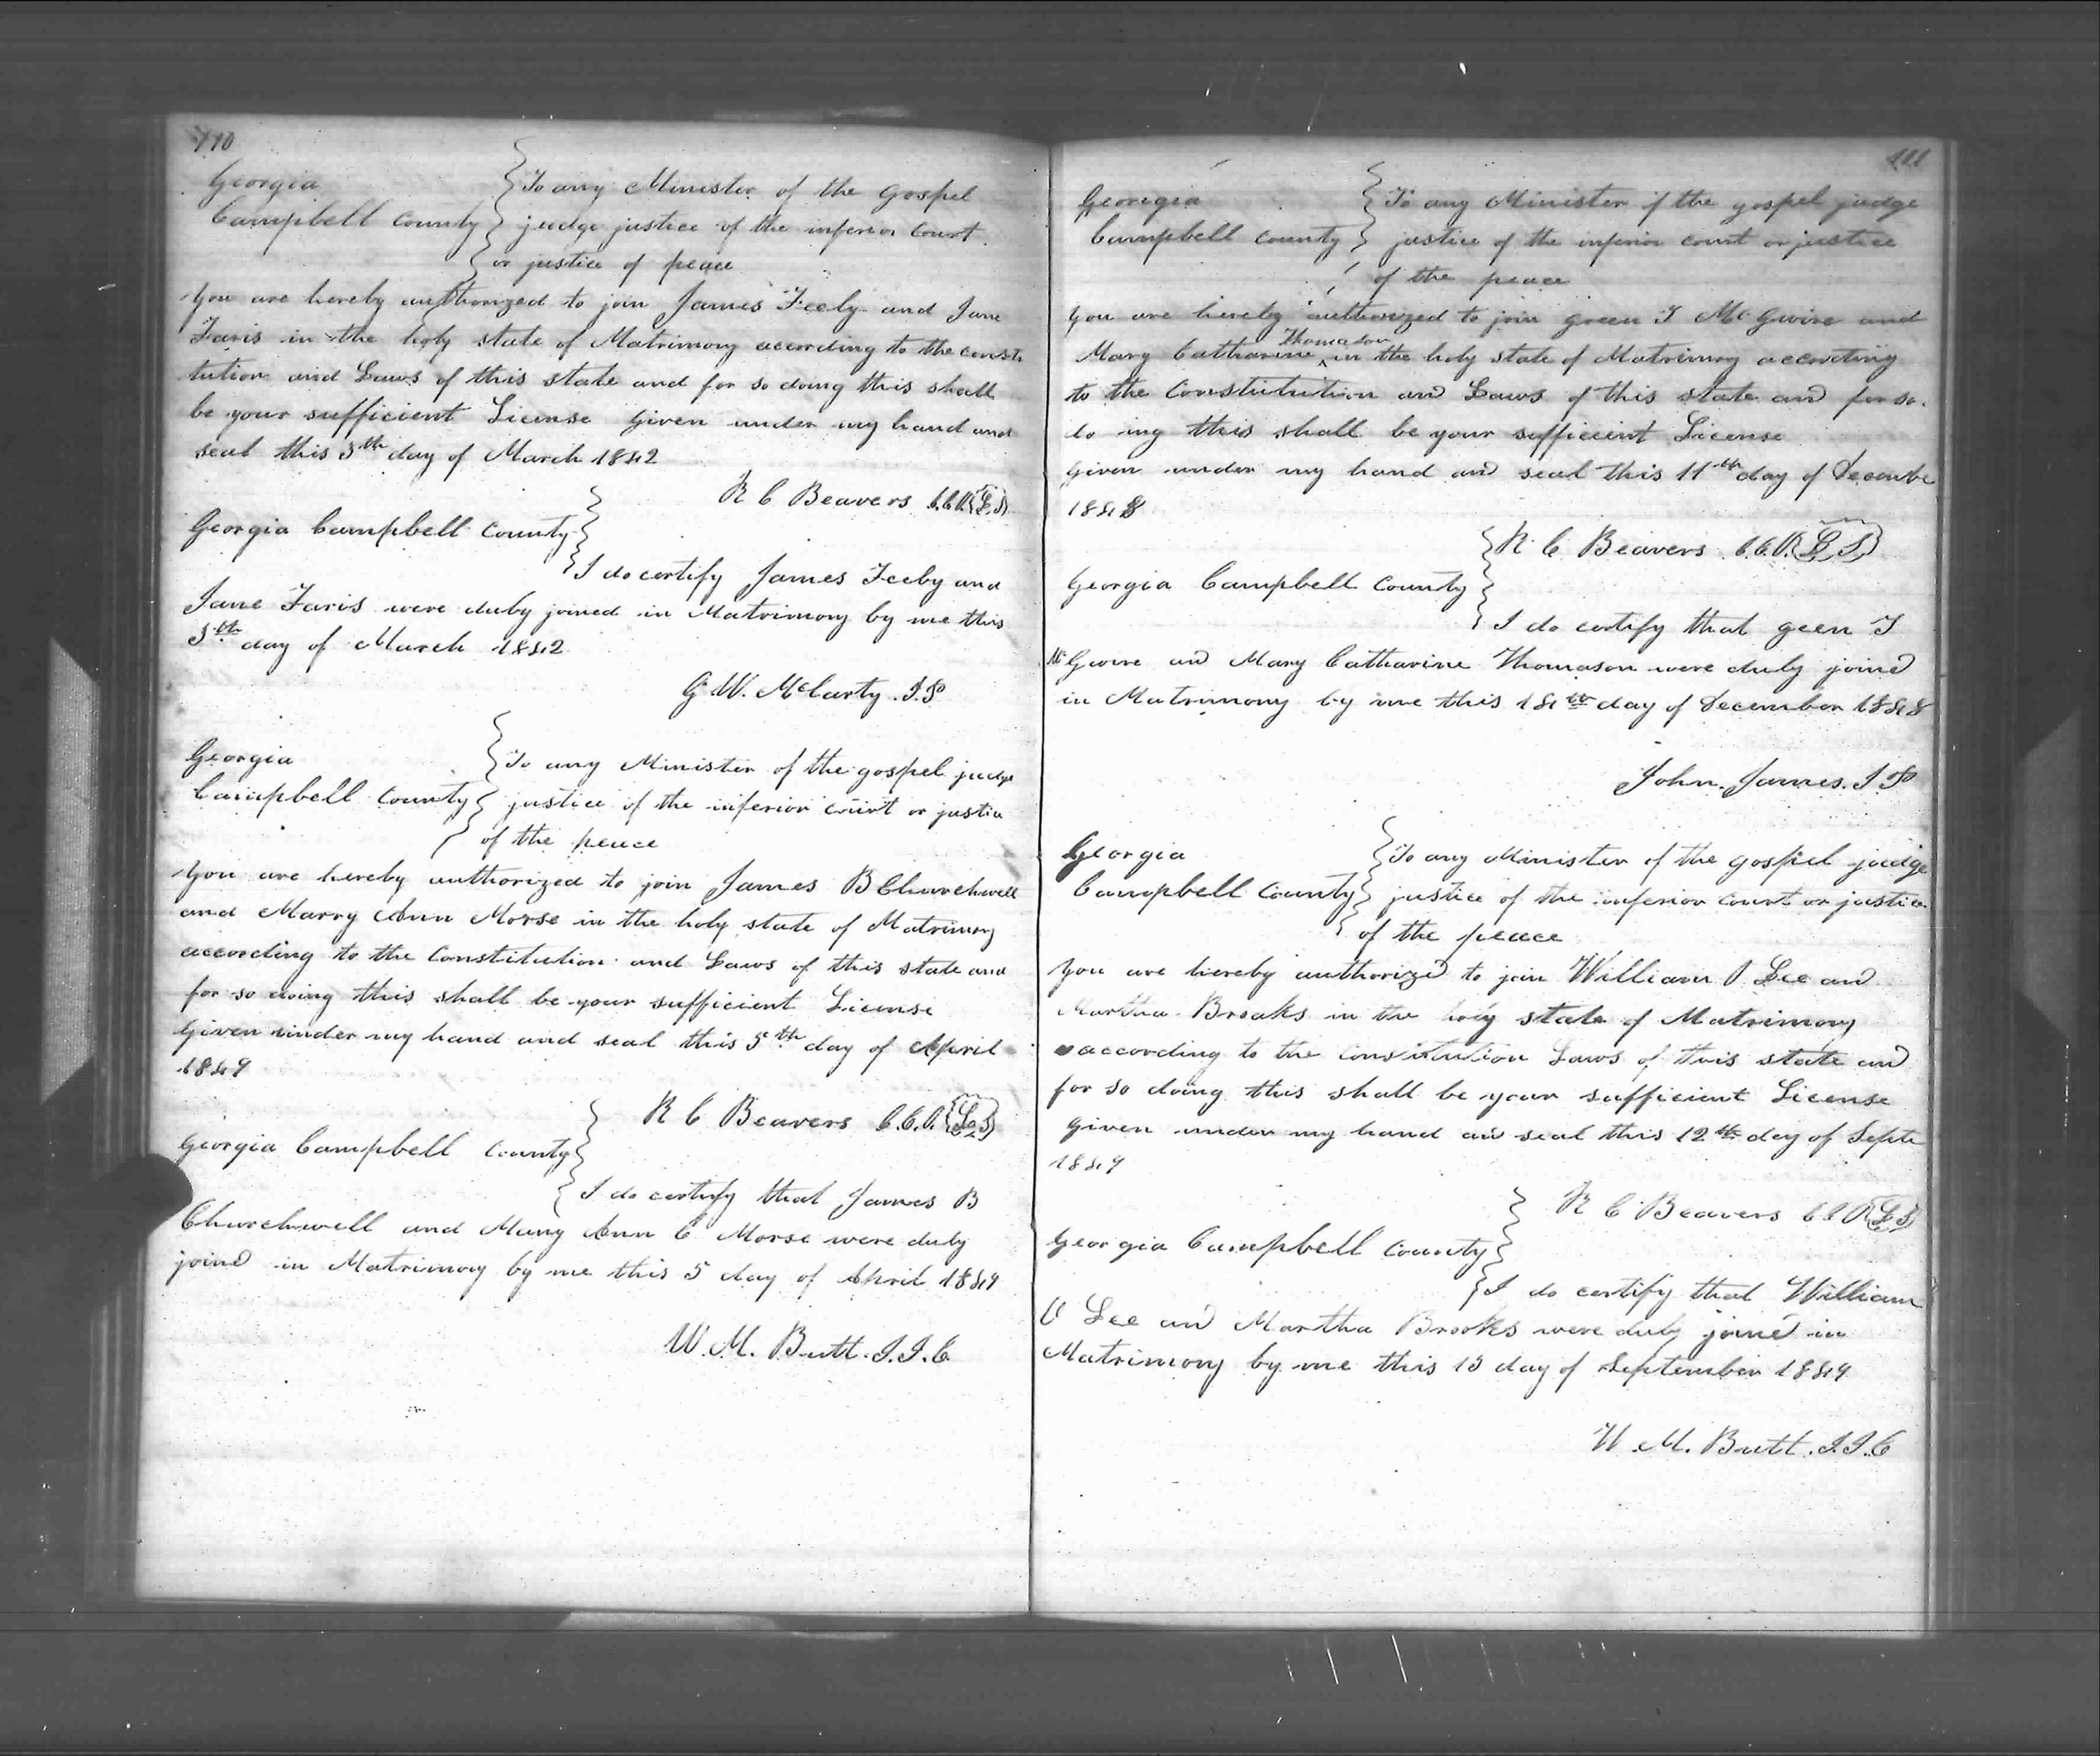 110
Georgia
Campbell County
To any Minister of the Gospel
judge justice of the inferior Court
or justice of peace
You are hereby authorized to join James Feely and Jane
Faris in the holy state of Matrimony according to the consti
tution and Laws of this state and for so doing this shall
be your sufficient License Given under my hand and
seal this 3th day of March 1842
R C Beavers C.C.O. L.S
Georgia Campbell County
I do certify James Feeby and
Jane Faris were duby joined in Matrimony by me this
3th day of March 1842
G W. McCarty. J.P
Georgia
Campbell County
To any Minister of the gospel judge
justice of the inferior court or justice
of the peace
You are hereby authorized to join James B Churchwell
and Marry Ann Morse in the holy state of Matrimony
according to the Constitution and Laws of this state and
for so doing this shall be your sufficient License
Given under my hand and seal this 5th day of April
1849
R C Beavers C.C.O. L.S
Georgia Campbell County
I do certify that James B
Churchwell and Mary Ann C Morse were duly
joined in Matrimony by me this 5 day of April 1849
W. M. Butt. J.I.C.
111
Georgia
Campbell County
To any Minister of the gospel judge
justice of the inferior court or justice
of the peace
You are hereby authorized to join green T McGwire and
Thomason
Mary Catharine ^ in the holy state of Matrimony according
to the Constitution and Laws of this state and for so
do ing this shall be your sufficient License
Given under my hand and seal this 11th day of Decembe
1848
R. C Beavers C.C.O. L S
Georgia Campbell County
I do certify that geen T
McGwire and Mary Catharine Thomason were duly joined
in Matrimony by me this 14th day of December 1848
John. James. J P
Georgia
Campbell County
To any Minister of the gospel judge
justice of the inferior Court or justice
of the peace
You are hereby authorized to join William O Lee and
Martha Brooks in the holy state of Matrimony
according to the Constitution Laws of this state and
for so doing this shall be your sufficient License
Given under my hand and seal this 12th day of Septe
1849
R C Beavers C C O L S
Georgia Campbell County
I do certify that William
O Lee and Martha Brooks were duly joined in
Matrimony by me this 13 day of September 1849
W. M. Butt. J.I.C